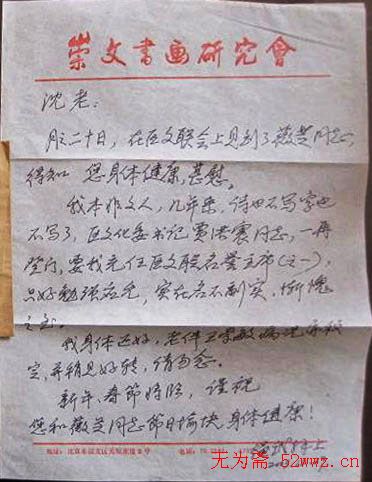 崇文书画研究會
沈老：
月二十日，在区文联会上见到了薇芝同志，
得知 您身体健康，甚慰。
我本非文人，几年来，诗也不写字也
不写了，区文化委书记贾洪震同志，一再
登门，要我充任区文联名誉主席(之一)，
只好勉强应允，实在名不副实，惭愧
之至。
我身体还好，老伴
定，并稍见好转，请勿念。
新年、春节将临，谨祝
您和薇芝同志节日愉快 身体健康！
地址：北京市崇文区
电话：
无为斋-52wwz.cn